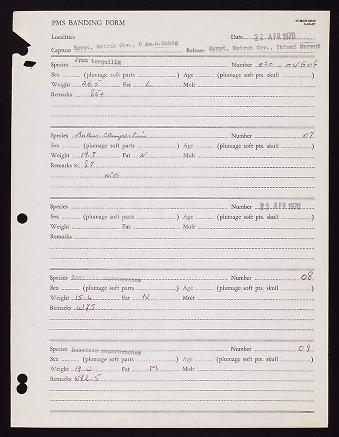 PMS BANDING FORM
Localities Date 22 APR 1970
Capture Egypt, Matruh Gov., 5 km.n.Bahig Release Egypt, Matruh Gov., Ikingi Maryut
Species Jynx torquilla Number 070 - 04606
Sex (plumage soft parts ) Age (plumage soft pts. skull )
Weight 26.5 Fat L Molt
Remarks
Species Anthus campestris Number 07
Sex (plumage soft parts ) Age (plumage soft pts. skull )
Weight 19.7 Fat N Molt
Remarks
Species Number 23 APR 1970
Sex (plumage soft parts ) Age (plumage soft pts. skull )
Weight Fat Molt
Remarks
Species Number 08
Sex (plumage soft parts ) Age (plumage soft pts. skull )
Weight 15.4 Fat N Molt
Remarks W75
Species Luscinia megarhynchos Number 09
Sex (plumage soft parts ) Age (plumage soft pts. skull )
Weight 19.0 Fat M Molt
Remarks W82.5